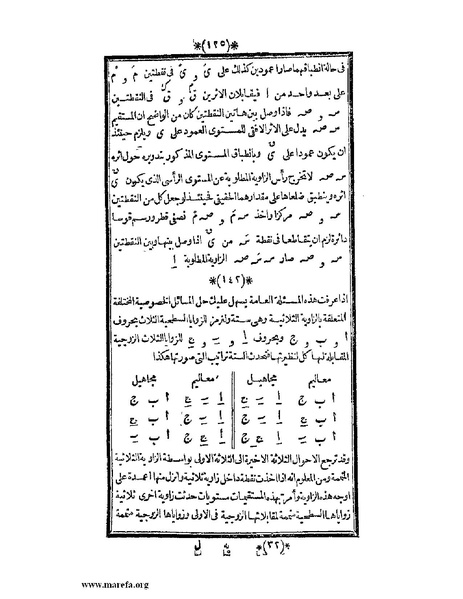 *(١٢٥)*
فى حالة انطباقهما صارا عمودين كذلك على ئ و ئ فى نقطتين م و م
على بعد واحد من ا فيقابلان الاثرين ق و ق فى النقطتين
س و صه فاذا وصل بين هاتين النقطتين كان من الواضح ان المستقيم
س صه يدل على الاثر الافقى للمستوى العمود على ئ ويلزم حينئذ
ان يكون عمودا على ئ وبانطباق المستوى المذكور بتدويره حول اثره
س صه لا تخرج رأس الزاوية المطلوبة عن المستوى الرأسى الذى يكون ئ
اثره وينطبق ضلعاها على مقدارهما الحقيقى فحينئذ لو جعل كل من النقطتين
س و صه مركزا واخذ س م و صه م نصفى قطر ورسم قوسا
دائرة لزم ان يتقاطعا فى نقطة س من ئ اذا وصل بينها وبين النقطتين
س و صه صار س س صه الزاوية المطلوبة ا
*(١٤٢)*
اذا عرفت هذه المسئلة العامة يسهل عليك حل المسائل الخصوصية المختلفة
المتعلقة بالزاوية الثلاثية وهى ستة ولنرمز للزوايا السطحية الثلاث بحروف
ا و ب و ج وبحروف ا و ب و ج للزوايا الثلاث الزوجية
المقابلة لها كل لنظيرتها فتحدث الستة تراتيب التى صورتها هكذا
معاليم مجاهيل معاليم مجاهيل
ا ب ج ا ب ج ا ب ج ا ب ج
ا ب ج ا ب ج ا ب ج ا ب ج
ا ب ج ا ب ج ا ب ج ا ب ج
وقد ترجع الاحوال الثلاثة الاخيرة الى الثلاثة الاولى بواسطة الزاوية الثلاثية
المتممة ومن المعلوم انه اذا اخذت نقطة داخل زاوية ثلاثية وانزل منها اعمدة على
اوجه هذه الزاوية وأمر بهذه المستقيمات مستويات حدثت زاوية اخرى ثلاثية
زواياها السطحية متممة لمقابلاتها الزوجية فى الاولى وزواياها الزوجية متممة
*(٣٢)* ل
www.marefa.org